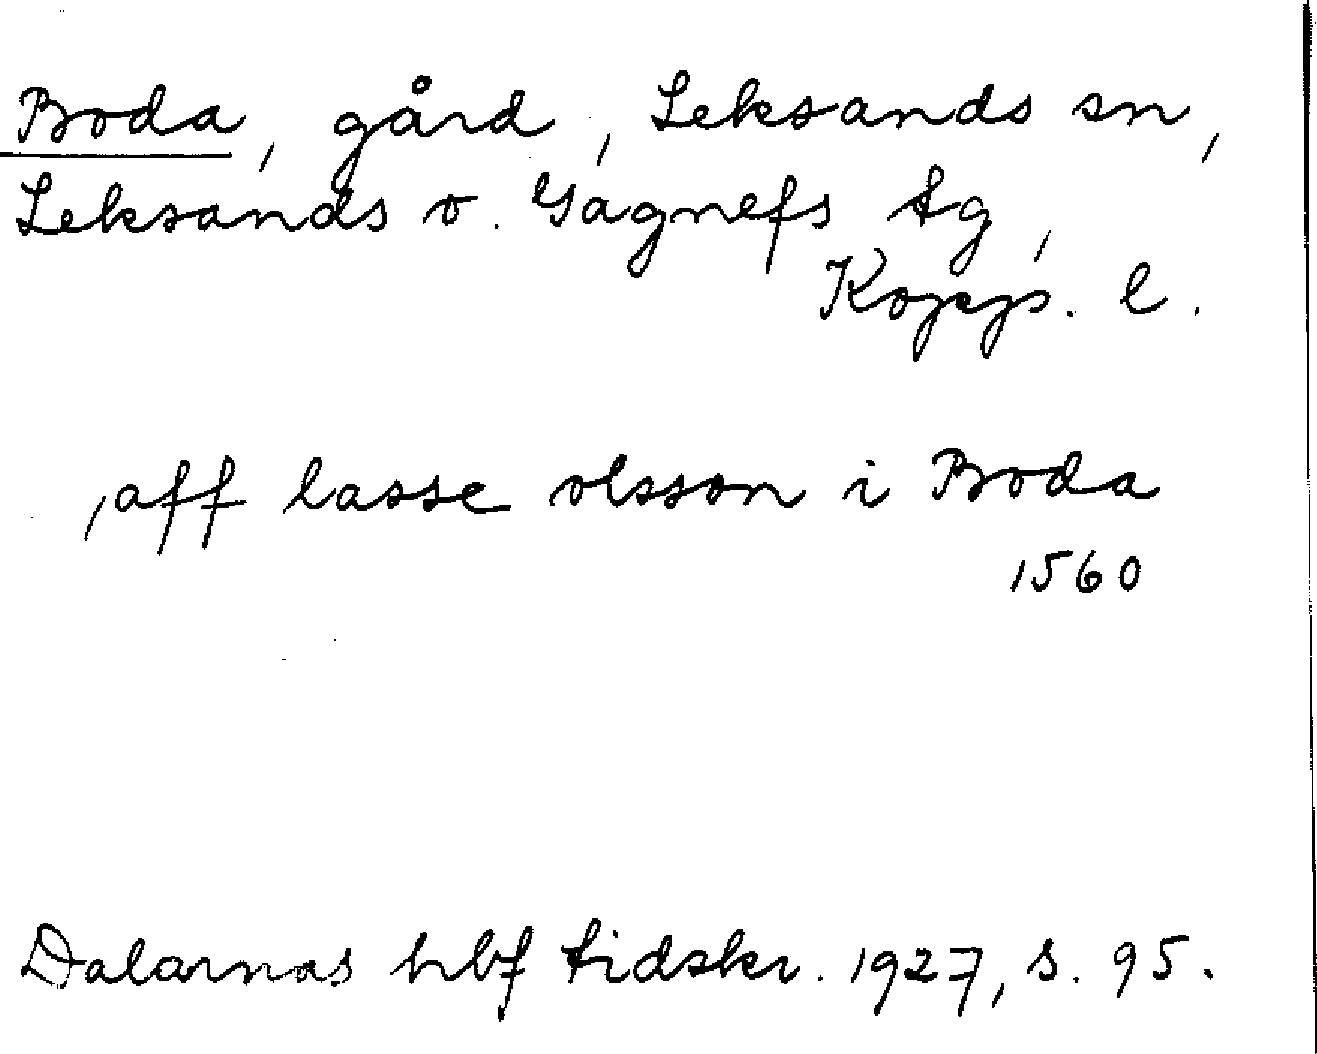 Boda, gård, Leksands sn,
Leksands o. Gagnefs tg,
Kopp. l.
, aff lasse olsson i Boda
1560
Dalarnas hbf tidskr. 1927, s. 95.